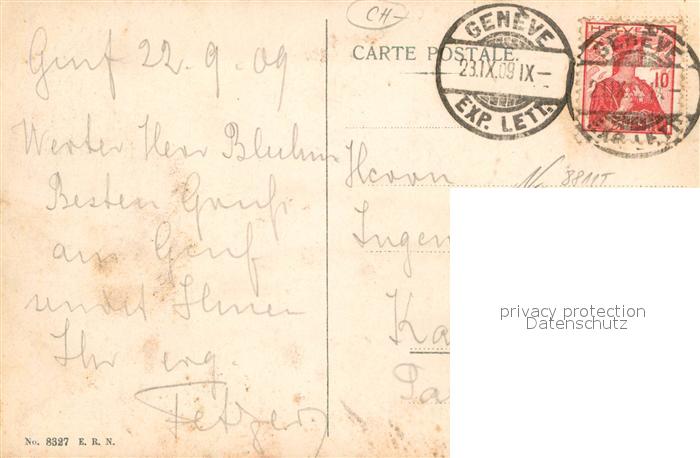 CH-
GENÈVE
23.IX.09 IX-
EXP. LETT.
HELVETIA
10
GENÈVE
EXP. LETT.
CARTE POSTALE.
Genf 22.9.09
Werter Herr Bluhm
Besten Gruß
aus Genf
sendet Ihnen
Ihr erg.
Fetzer
Herrn
Ingen
Ka
8811T
privacy protection
Datenschutz
No. 8327 E. R. N.